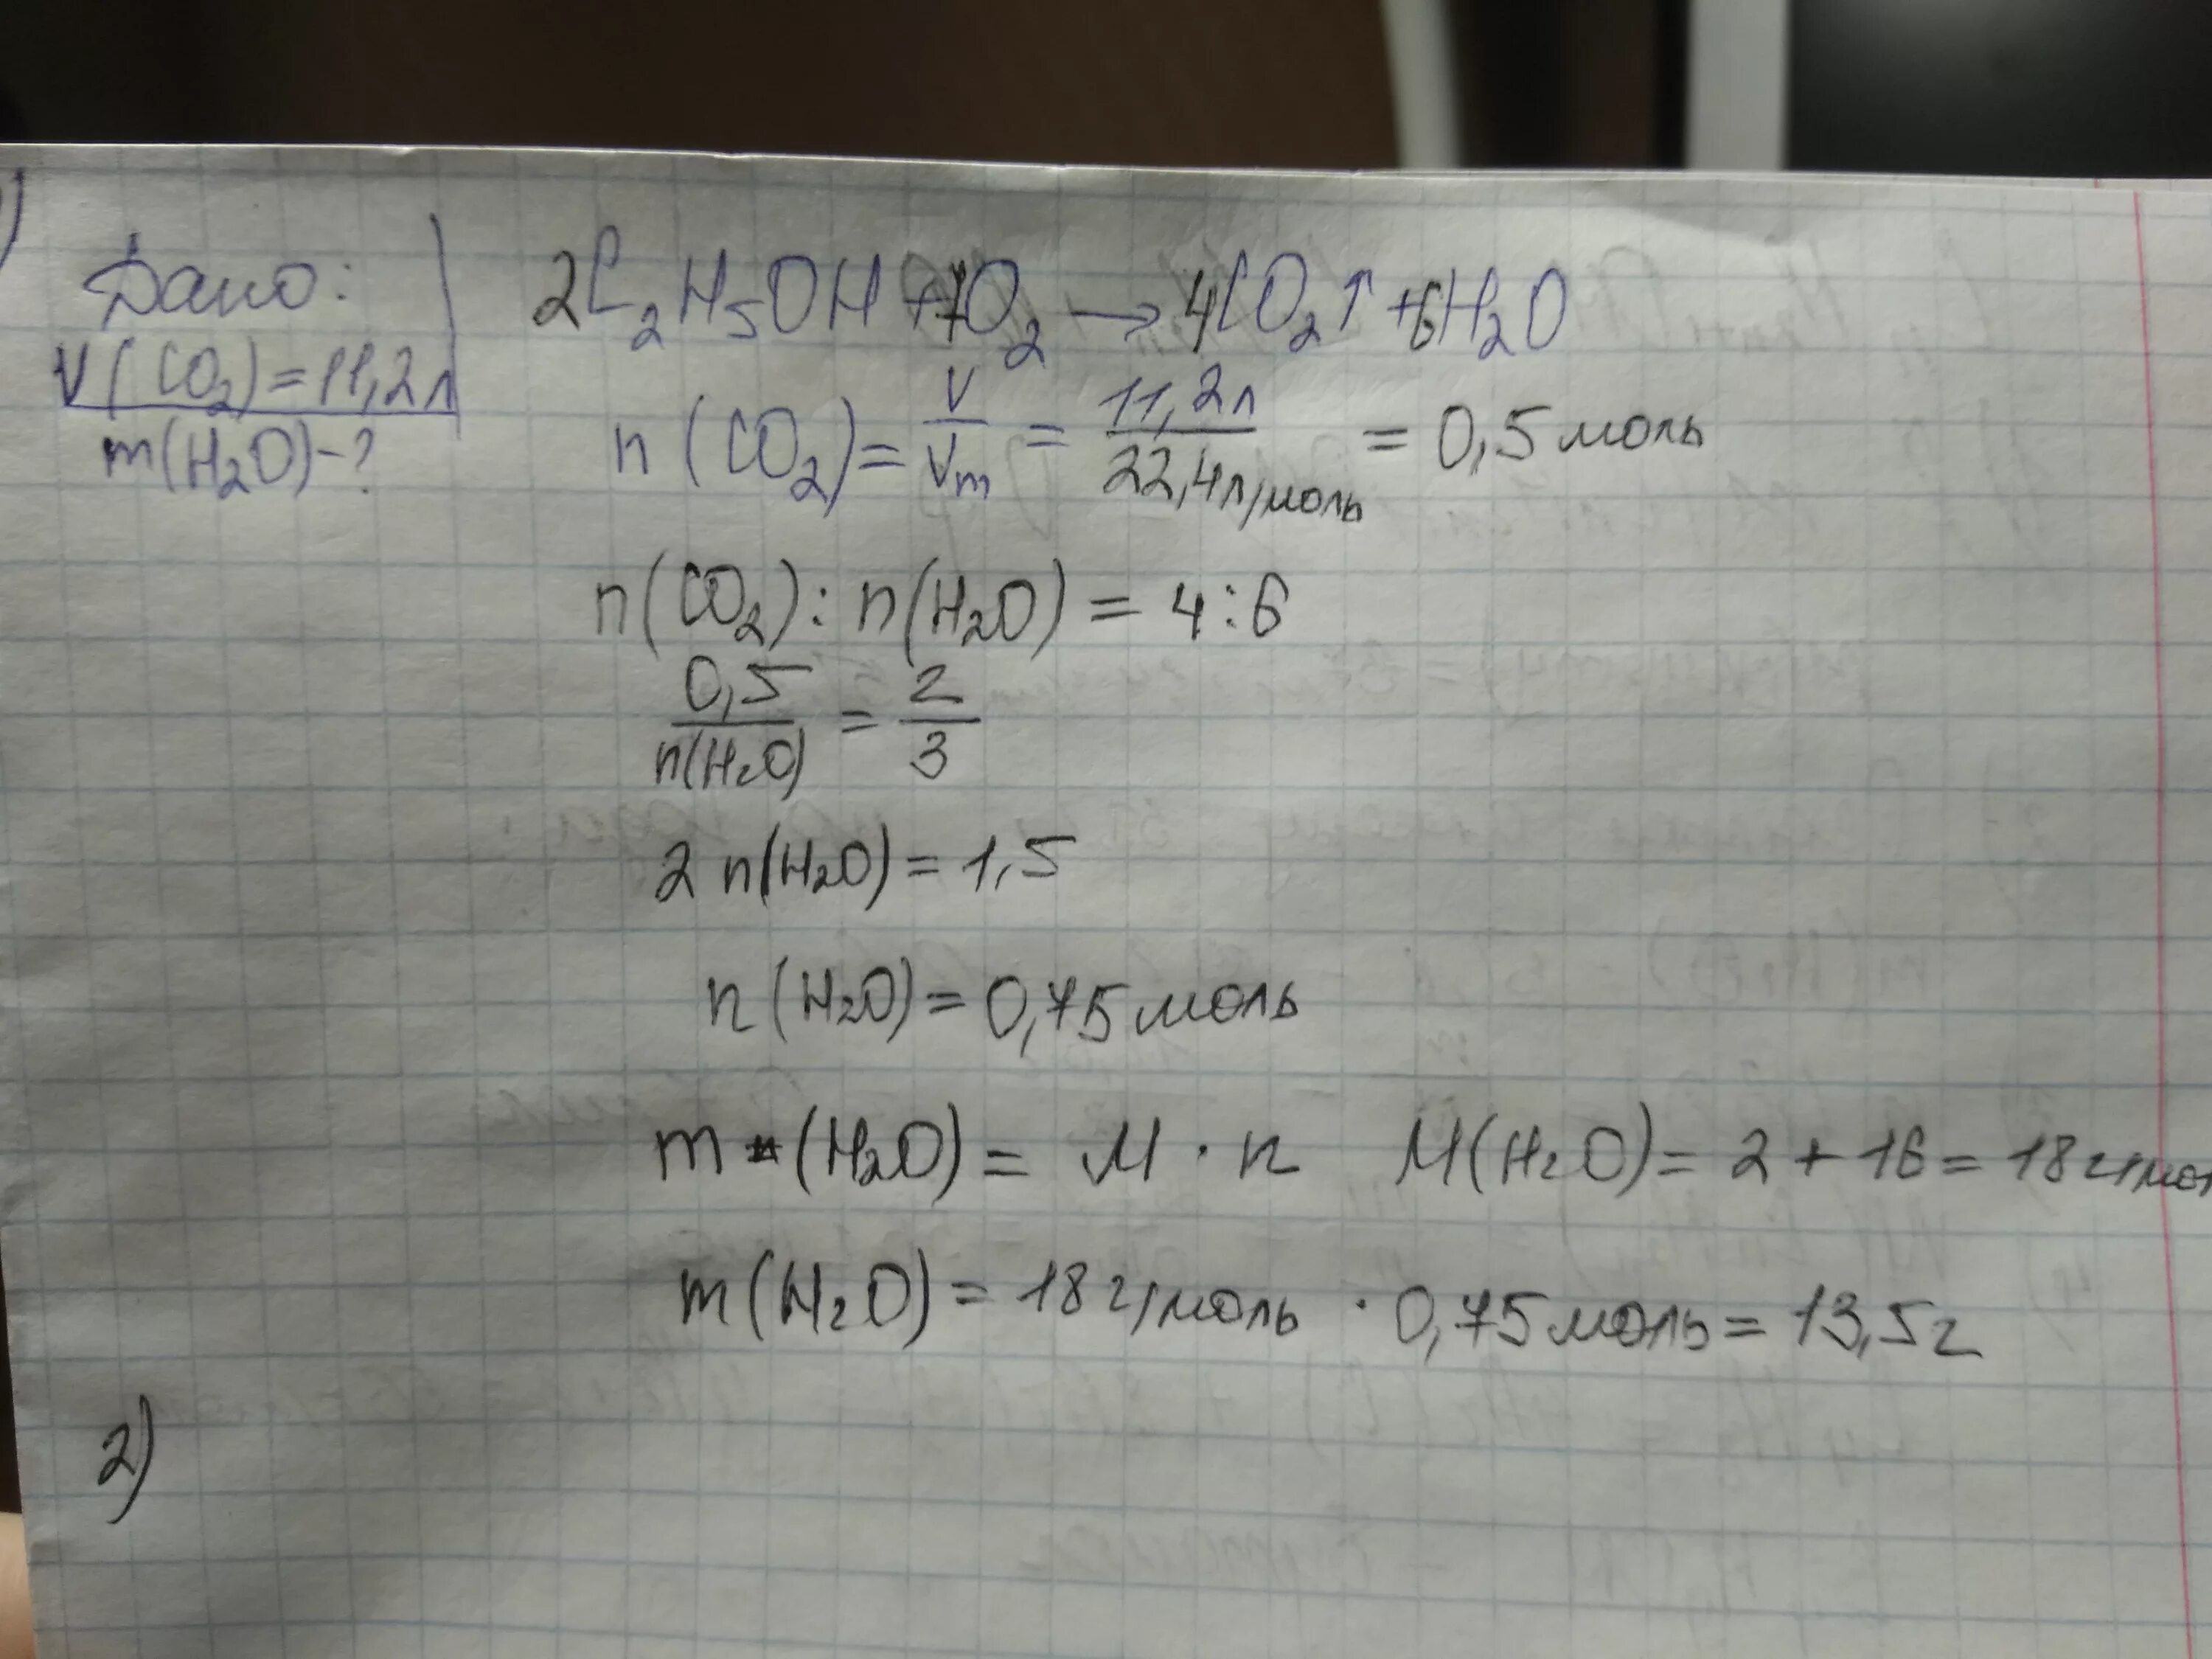 )
Дано:
V(CO₂)=11,2л
m(H₂O)-?
2C₂H₅OH+7O₂ → 4CO₂↑ +6H₂O
n (CO₂)= V/Vm = 11,2л/22,4л/моль = 0,5 моль
n(CO₂): n(H₂O) = 4:6
0,5/n(H₂O) = 2/3
2 n(H₂O) = 1,5
n (H₂O) = 0,75 моль
m (H₂O) = M · n M(H₂O) = 2 + 16 = 18 г/мол
m (H₂O) = 18 г/моль · 0,75 моль = 13,5 г
2)